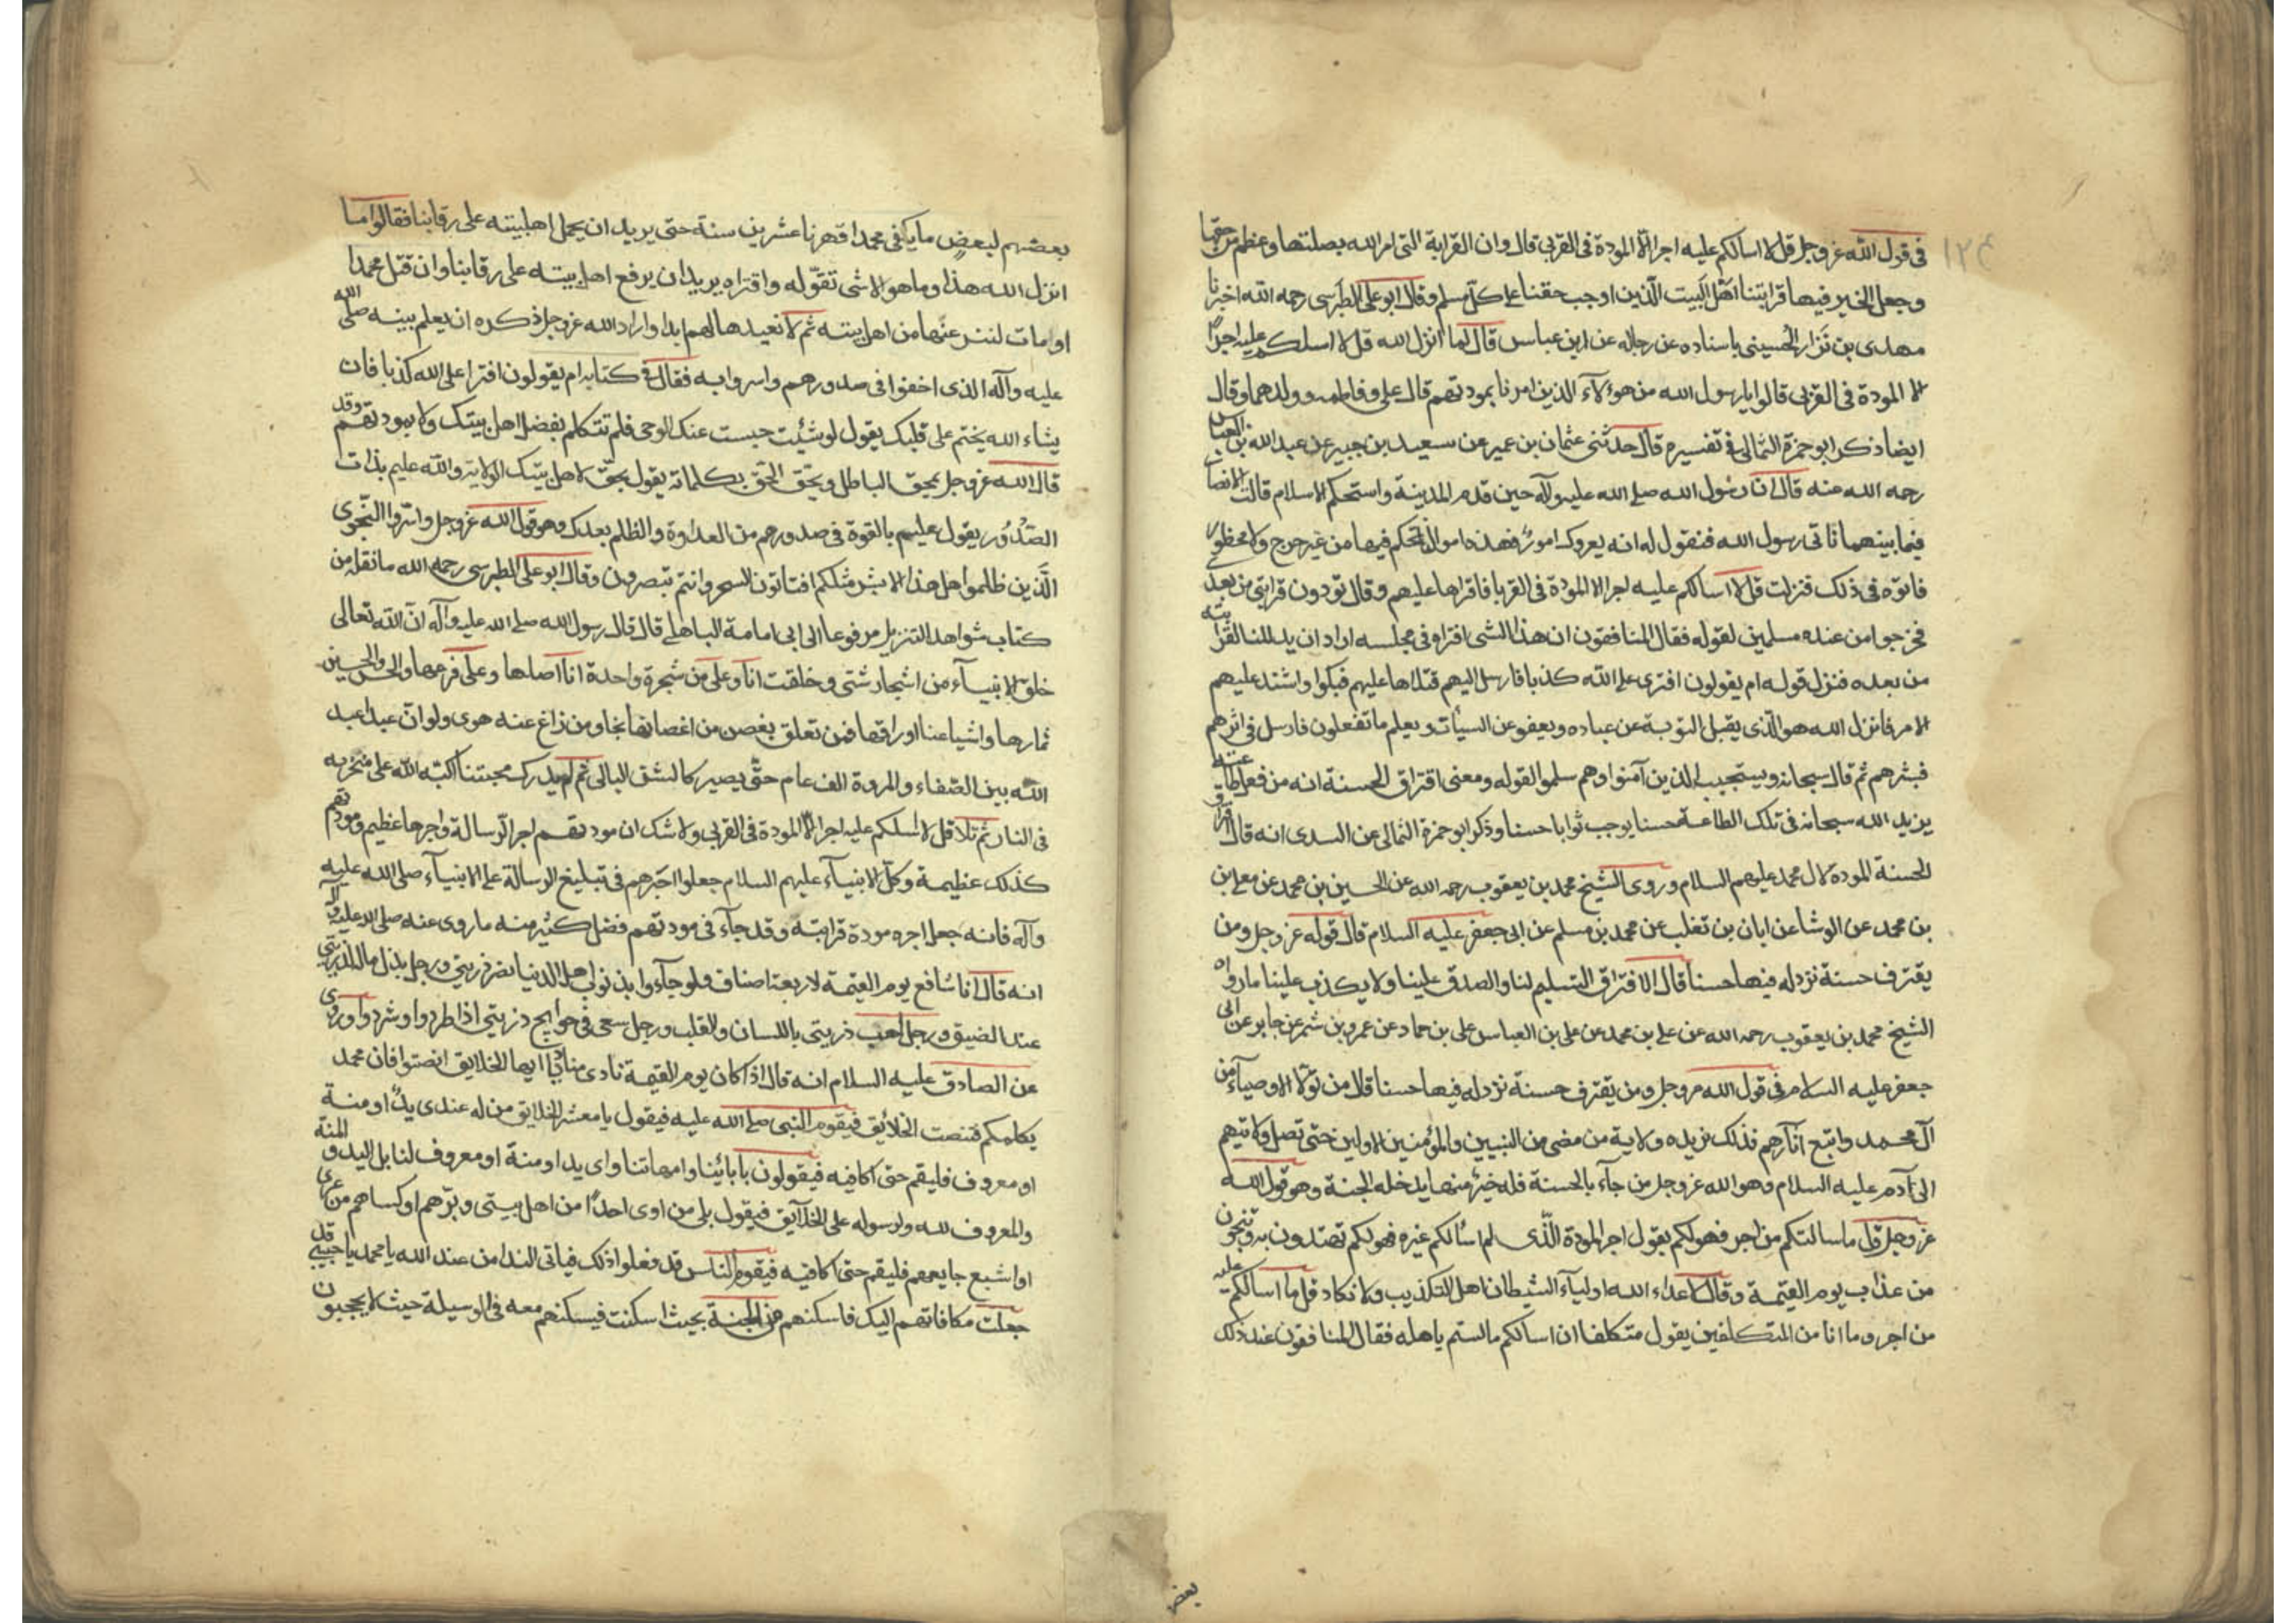 ١٢٤
في قول الله عز وجل قل لا اسالكم عليه اجرا الا المودة في القربى قال وان القرابة التى امر الله بصلتها وعظم من حقها
وجعل الخير فيها قرابتنا اهل البيت الذين اوجب حقنا على كل مسلم وقال ابو على الطبرسى رحمه الله اخبرنا
مهدى بن نزار الحسينى باسناده عن رجاله عن ابن عباس قال لما انزل الله قل لا اسلكم عليه اجرا
الا المودة في القربى قالوا يا رسول الله من هؤلاء الذين امرنا بمودتهم قال على وفاطمه وولدهما وقال
ايضا ذكر ابو حمزة الثمالى في تفسيره قال حدثنى عثمان بن عمير عن سعيد بن جبير عن عبد الله بن العباس
رحمه الله عنه قال ان رسول الله صلى الله عليه وآله حين قدم المدينة واستحكم الاسلام قالت الانصار
فيما بينهما ناتى رسول الله فنقول له انه يعروك امور فهذه اموالنا تحكم فيها من غير حرج ولا محظور
فاتوه في ذلك فنزلت قل لا اسالكم عليه اجرا الا المودة في القربا فاقراها عليهم وقال تودون قرابتى من بعدى
فخرجوا من عنده مسلمين لقوله فقال المنافقون ان هذا الشى افتراه في مجلسه اراد ان يذللنا لقرابته
من بعده فنزل قوله ام يقولون افترى على الله كذبا فارسل اليهم فتلاها عليهم فبكوا واشتد عليهم
الامر فانزل الله هو الذى يقبل التوبة عن عباده ويعفو عن السيات ويعلم ما تفعلون فارسل في اثرهم
فبشرهم ثم قال سبحانه ويستجيب الذين آمنوا وهم سلموا لقوله ومعنى اقتراف الحسنة انه من فعل طاعة
يزيد الله سبحانه في تلك الطاعة حسنا يوجب ثوابا حسنا وذكر ابو حمزة الثمالى عن السدى انه قال اقتراف
الحسنة المودة لال محمد عليهم السلام وروى الشيخ محمد بن يعقوب رحمه الله عن الحسين بن محمد عن معلى بن
بن محمد عن الوشا عن ابان بن تغلب عن محمد بن مسلم عن ابى جعفر عليه السلام قال قوله عز وجل ومن
يقترف حسنة نزد له فيها حسنا قال الاقتراف التسليم لنا والصدق علينا ولا يكذب علينا ما رواه
الشيخ محمد بن يعقوب رحمه الله عن على بن محمد عن على بن العباس على بن حماد عن عمرو بن شمر عن جابر عن ابى
جعفر عليه السلام في قول الله عز وجل ومن يقترف حسنة نزد له فيها حسنا قال من تولا الاوصياء من
آل محمد واتبع آثارهم فذلك نزيده ولاية من مضى من النبيين والمؤمنين الاولين حتى تصل ولايتهم
الى آدم عليه السلام وهو الله عز وجل من جآء بالحسنة فله خير منها يدخله الجنة وهو قول الله
عز وجل قل ما سالتكم من اجر فهو لكم يقول اجر المودة الذى لم اسالكم غيره فهو لكم تهتدون به وتنجون
من عذاب يوم القيمة وقال لاعداء الله اوليآء الشيطان اهل التكذيب ولانكاد قل ما اسالكم عليه
من اجر وما انا من المتكلفين يقول متكلفا ان اسالكم ما لستم باهله فقال المنافقون عند ذلك
بعض
بعضهم لبعض ما يكفى محمدا قهرنا عشرين سنة حتى يريد ان يحمل اهلبيته على رقابنا فقالوا ما
انزل الله هذا وما هو الا شى تقوله وافتراه يريد ان يرفع اهل بيته على رقابنا وان قتل محمدا
او مات لننزعنها من اهل بيته ثم لا نعيدها لهم ابدا واراد الله عز وجل ذكره ان يعلم نبيه صلى الله
عليه وآله الذى اخفوا في صدورهم واسروا به فقال في كتابه ام يقولون افترا على الله كذبا فان
يشاء الله يختم على قلبك يقول لو شئت حبست عنك الوحى فلم تتكلم بفضل اهل بيتك ولا بمودتهم وقد
قال الله عز وجل يمحق الباطل ويحق الحق بكلماته يقول بحق لاهل بيتك الولاية والله عليم بذات
الصدور يقول عليهم بالقوة في صدورهم من العداوة والظلم بعدك وهو قول الله عز وجل واسروا النجوى
الذين ظلموا هل هذا الا بشر مثلكم افتاتون السحر وانتم تبصرون وقال ابو على الطبرسى رحمه الله ما نقله من
كتاب شواهد التنزيل مرفوعا الى ابى امامة الباهلى قال قال رسول الله صلى الله عليه وآله ان الله تعالى
خلق الانبيآء من اشجار شتى وخلقت انا وعلى من شجرة واحدة انا اصلها وعلى فرعها والحسن والحسين
ثمارها واشياعنا اوراقها فمن تعلق بغصن من اغصانها نجا ومن زاغ عنه هوى ولو ان عبدا عبد
الله بين الصفاء والمروة الف عام حتى يصير كالشن البالى ثم لم يدرك محبتنا اكبه الله على منخريه
في النار ثم تلا قل لا اسلكم عليه اجرا الا المودة في القربى ولا شك ان مودتهم اجر الرسالة واجرها عظيم ومودتهم
كذلك عظيمة وكل الانبيآء عليهم السلام جعلوا اجرهم في تبليغ الرسالة على الانبيآء صلى الله عليه
وآله فانه جعل اجره مودة قرابته وقد جآء في مودتهم فضل كثير منه ما روى عنه صلى الله عليه وآله
انه قال انا شافع يوم القيمة لاربعة اصناف ولو جآءوا بذنوب اهل الدنيا نصر ذريتى ورجل بذل ماله لذريتى
عند الضيق ورجل احب ذريتى باللسان والقلب ورجل سعى في حوايج ذريتى اذا طردوا وشردوا وروى
عن الصادق عليه السلام انه قال اذا كان يوم القيمة نادى مناد ايها الخلايق انصتوا فان محمد
يكلمكم فتنصت الخلائق فيقوم النبى صلى الله عليه فيقول يا معشر الخلايق من له عندى يد او منة
او معروف فليقم حتى اكافيه فيقولون بابائنا وامهاتنا واى يد او منة او معروف لنا بل اليد والمنة
والمعروف لله ولرسوله على الخلآيق فيقول بلى من اوى احدا من اهل بيتى وبرهم او كساهم من عرى
او اشبع جايعهم فليقم حتى اكافيه فيقوم الناس قد فعلوا ذلك فياتى الندا من عند الله يا محمد يا حبيبى قد
جعلت مكافاتهم اليك فاسكنهم من الجنة بحيث اسكنت فيسكنهم معه في الوسيلة حيث لا يحجبون